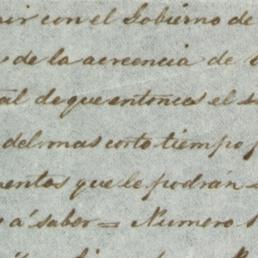 con el Gobierno de
de la acreencia de
tal de que entonces el
del mas corto tiempo
que le podrán
á saber = Numero